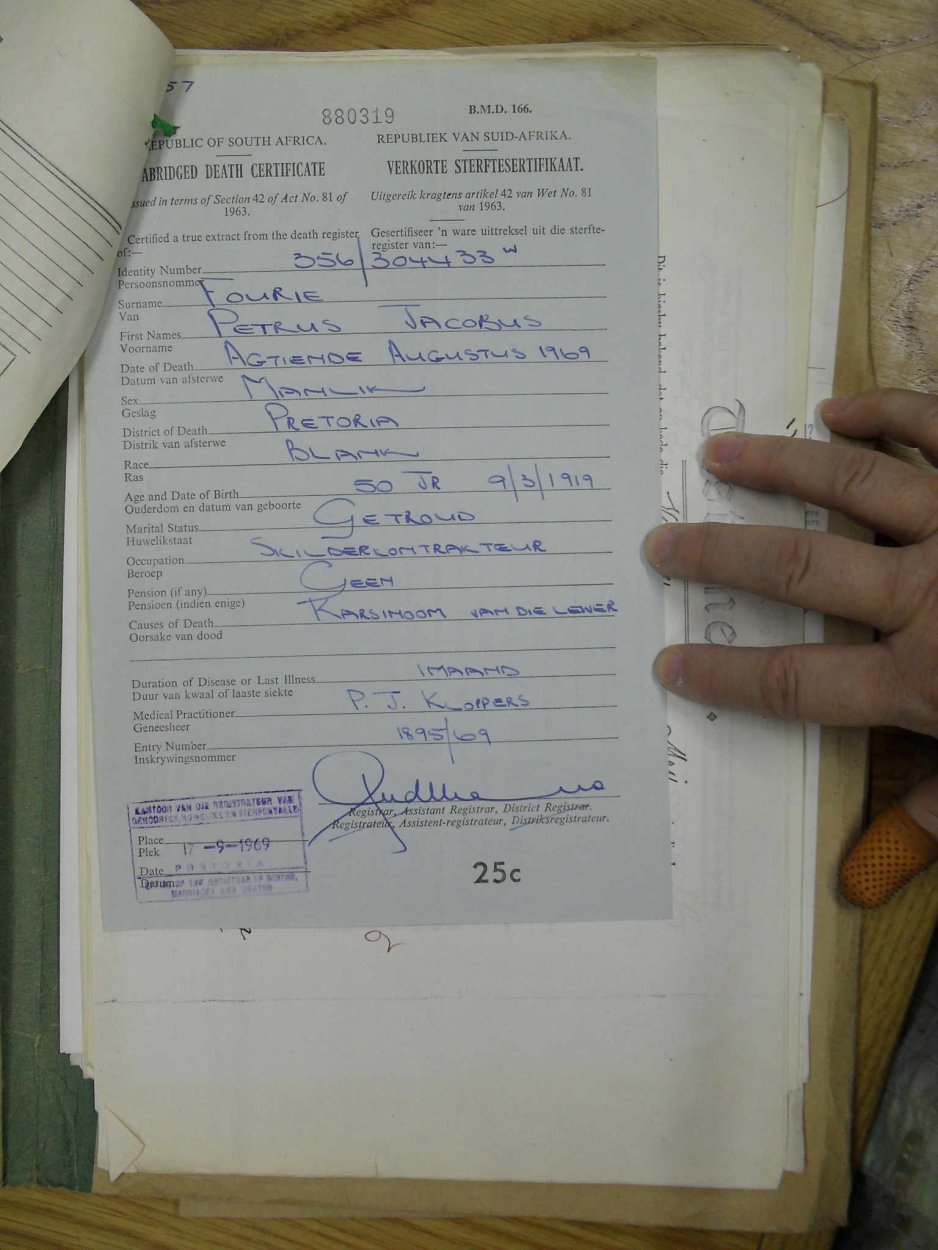 57
880319
B.M.D. 166.
REPUBLIC OF SOUTH AFRICA.
REPUBLIEK VAN SUID-AFRIKA.
ABRIDGED DEATH CERTIFICATE
VERKORTE STERFTESERTIFIKAAT.
Issued in terms of Section 42 of Act No. 81 of
1963.
Uitgereik kragtens artikel 42 van Wet No. 81
van 1963.
Certified a true extract from the death register
of:—
Gesertifiseer 'n ware uittreksel uit die sterfte-
register van:—
Identity Number 356/304433 W
Persoonsnommer
Surname FOURIE
Van
First Names PETRUS JACOBUS
Voorname
Date of Death AGTIENDE AUGUSTUS 1969
Datum van afsterwe
Sex MANLIK
Geslag
District of Death PRETORIA
Distrik van afsterwe
Race BLANK
Ras
Age and Date of Birth 50 JR 9/3/1919
Ouderdom en datum van geboorte
Marital Status GETROUD
Huwelikstaat
Occupation SKILDERKONTRAKTEUR
Beroep
Pension (if any) GEEN
Pensioen (indien enige)
Causes of Death KARSINOOM VAN DIE LEWER
Oorsake van dood
Duration of Disease or Last Illness 1 MAAND
Duur van kwaal of laaste siekte
Medical Practitioner P. J. KLOPPERS
Geneesheer
Entry Number 1895/69
Inskrywingsnommer
Registrar, Assistant Registrar, District Registrar.
Registrateur, Assistent-registrateur, Distriksregistrateur.
KANTOOR VAN DIE REGISTRATEUR VAN
Place
Plek
17-9-1969
Date
PRETORIA
Datum
25c